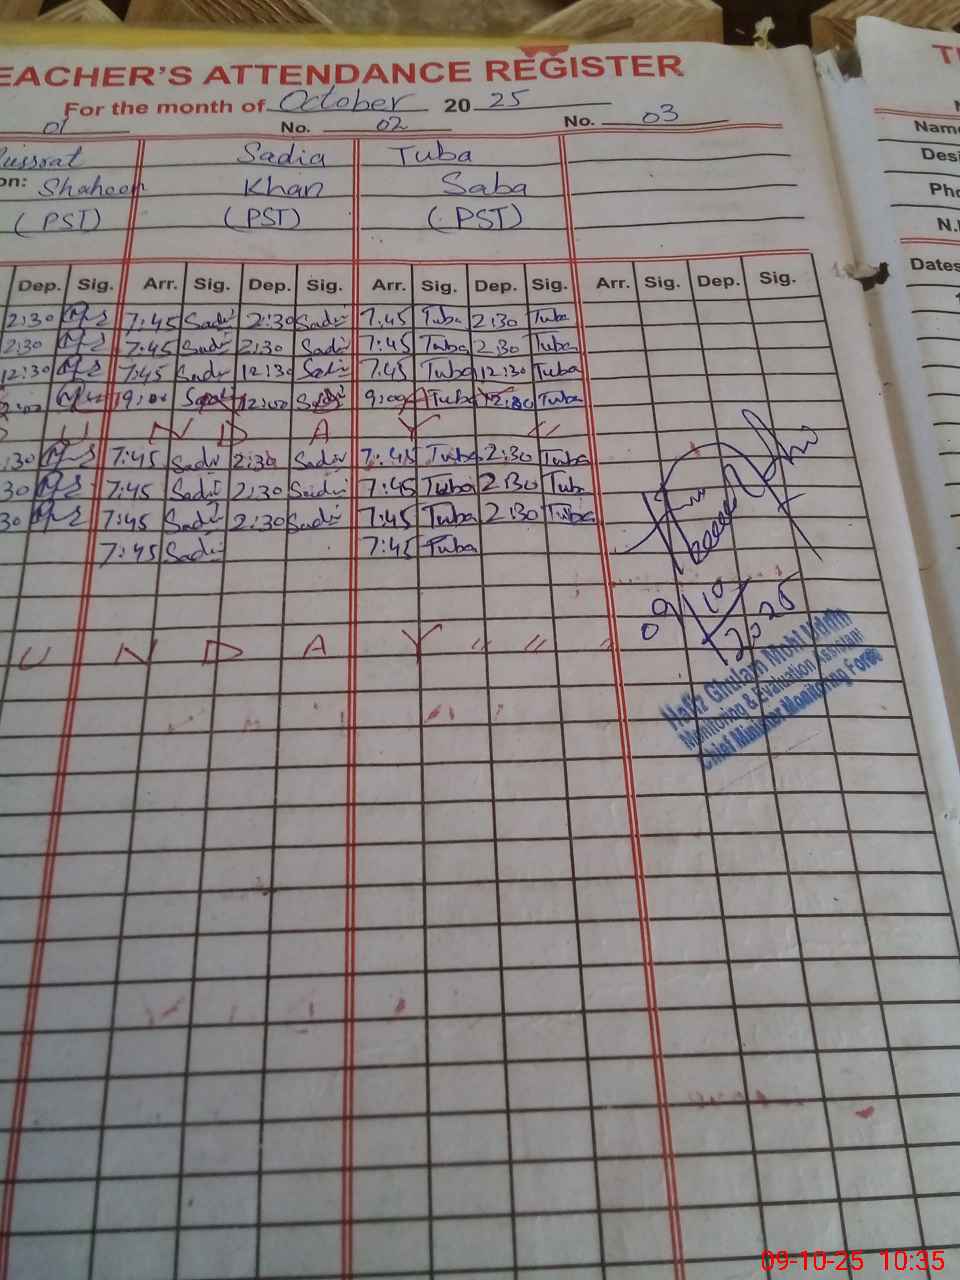 EACHER'S ATTENDANCE REGISTER
For the month of October 20 25
01 No. 02 No. 03
Sadia Tuba
on: Shaheen Khan Saba
(PST) (PST) (PST)
Dep. Sig. Arr. Sig. Dep. Sig. Arr. Sig. Dep. Sig. Arr. Sig. Dep. Sig.
2:30 7:45 Sadi 2:30 Sadi 7:45 Tuba 2:30 Tuba
2:30 7:45 Sadi 2:30 Sadi 7:45 Tuba 2:30 Tuba
12:30 7:45 Sadi 12:30 Sadi 7:45 Tuba 12:30 Tuba
9:00 12:00 9:00 Tuba 12:00 Tuba
U N D A Y "
:30 7:45 Sadi 2:30 Sadi 7:45 Tuba 2:30 Tuba
30 7:45 Sadi 2:30 Sadi 7:45 Tuba 2:30 Tub
30 7:45 Sadi 2:30 Sadi 7:45 Tuba 2:30 Tuba
7:45 Sadi 7:45 Tuba
U N D A Y " " "
09/10/2025
Hafiz Ghulam Mohi Uddin
Monitoring & Evaluation Assistant
Chief Minister Monitoring Force
T
N
Name
Desi
Pho
N.I
Dates
09-10-25 10:35